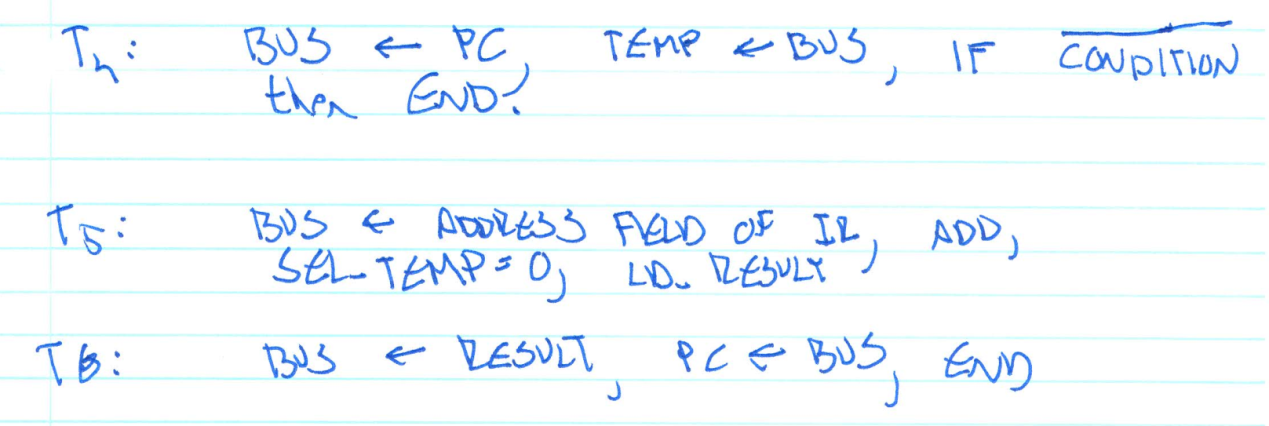 T4: BUS ← PC, TEMP ← BUS, IF C̅O̅N̅D̅I̅T̅I̅O̅N̅
then END.
T5: BUS ← ADDRESS FIELD OF IR, ADD,
SEL_TEMP = 0, LD_RESULT
T6: BUS ← RESULT, PC ← BUS, END